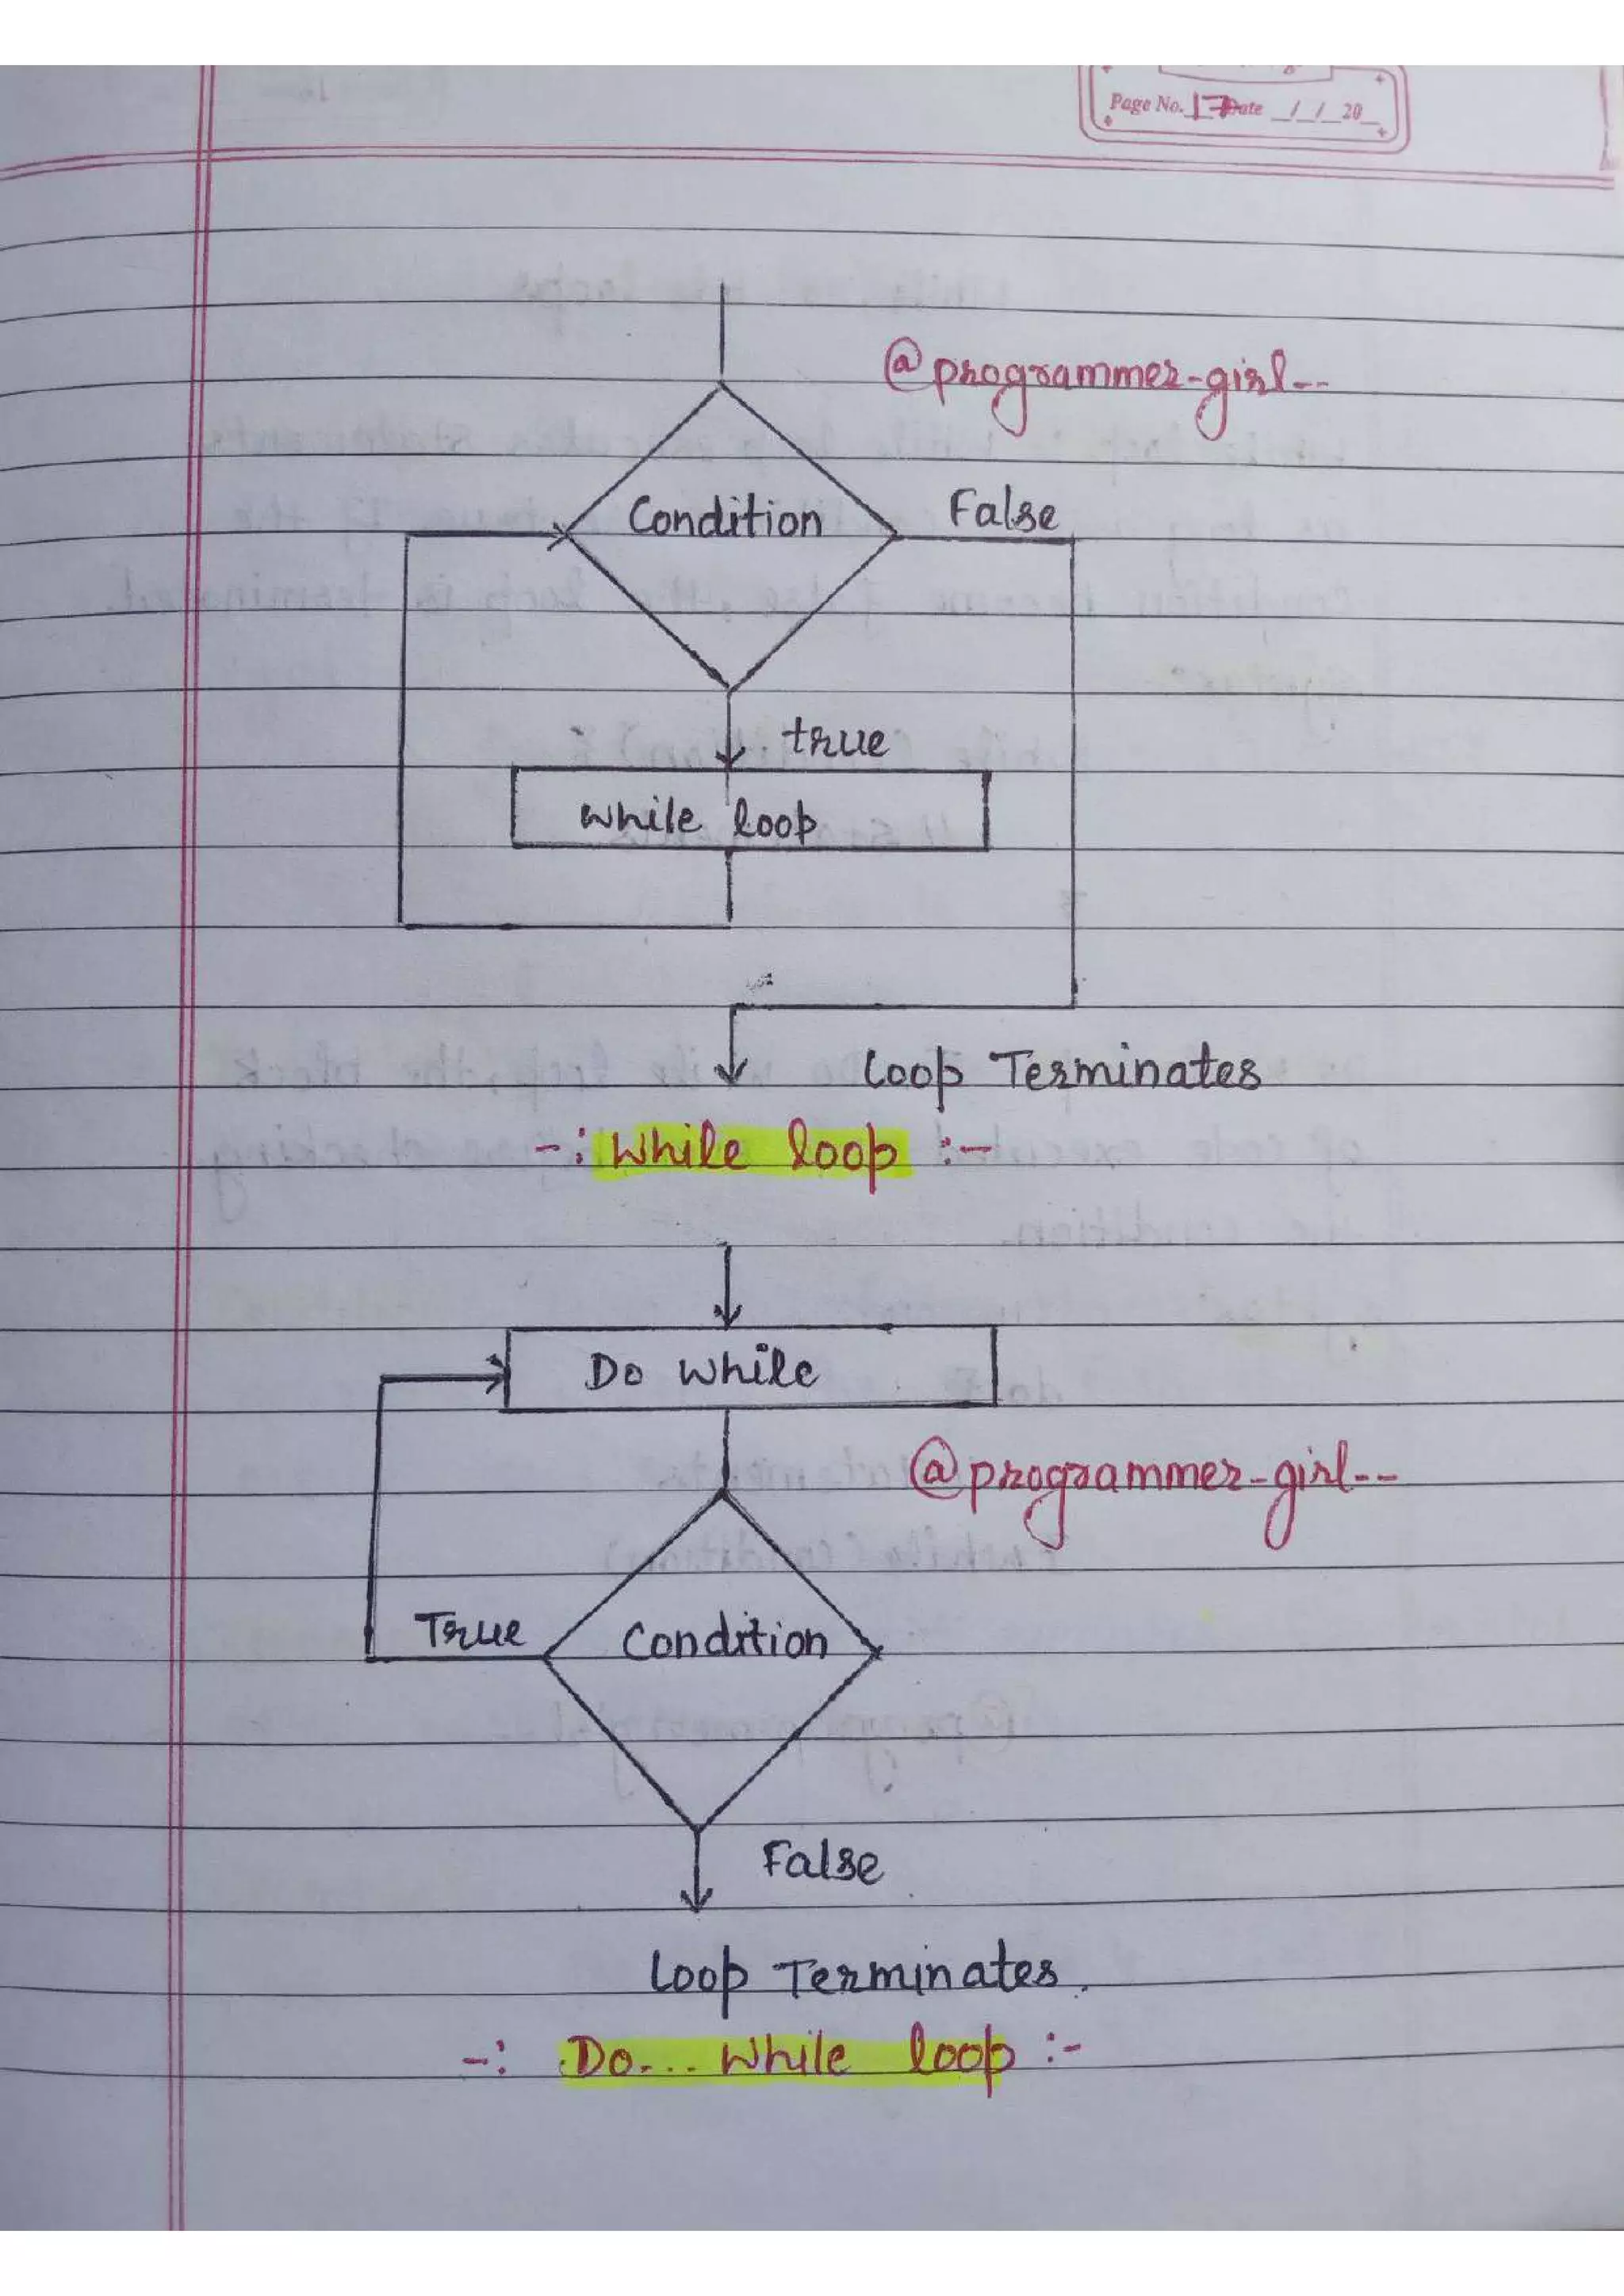 Page No. 17 Date _/_/_20_
@programmer-girl--
Condition
False
true
while loop
Loop Terminates
-: While loop :-
Do While
@programmer-girl--
True
Condition
False
Loop Terminates.
-: Do... While loop :-